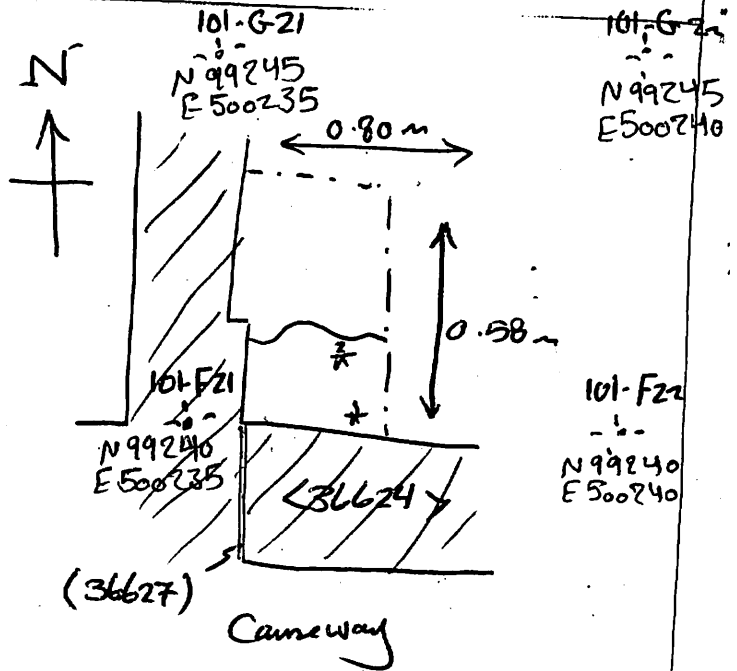 101-G21
N 99245
E 500235
101-G22
N 99245
E 500240
N
0.80 m
0.58 m
101-F21
N 99240
E 500235
101-F22
N 99240
E 500240
<36624>
(36627)
Causeway